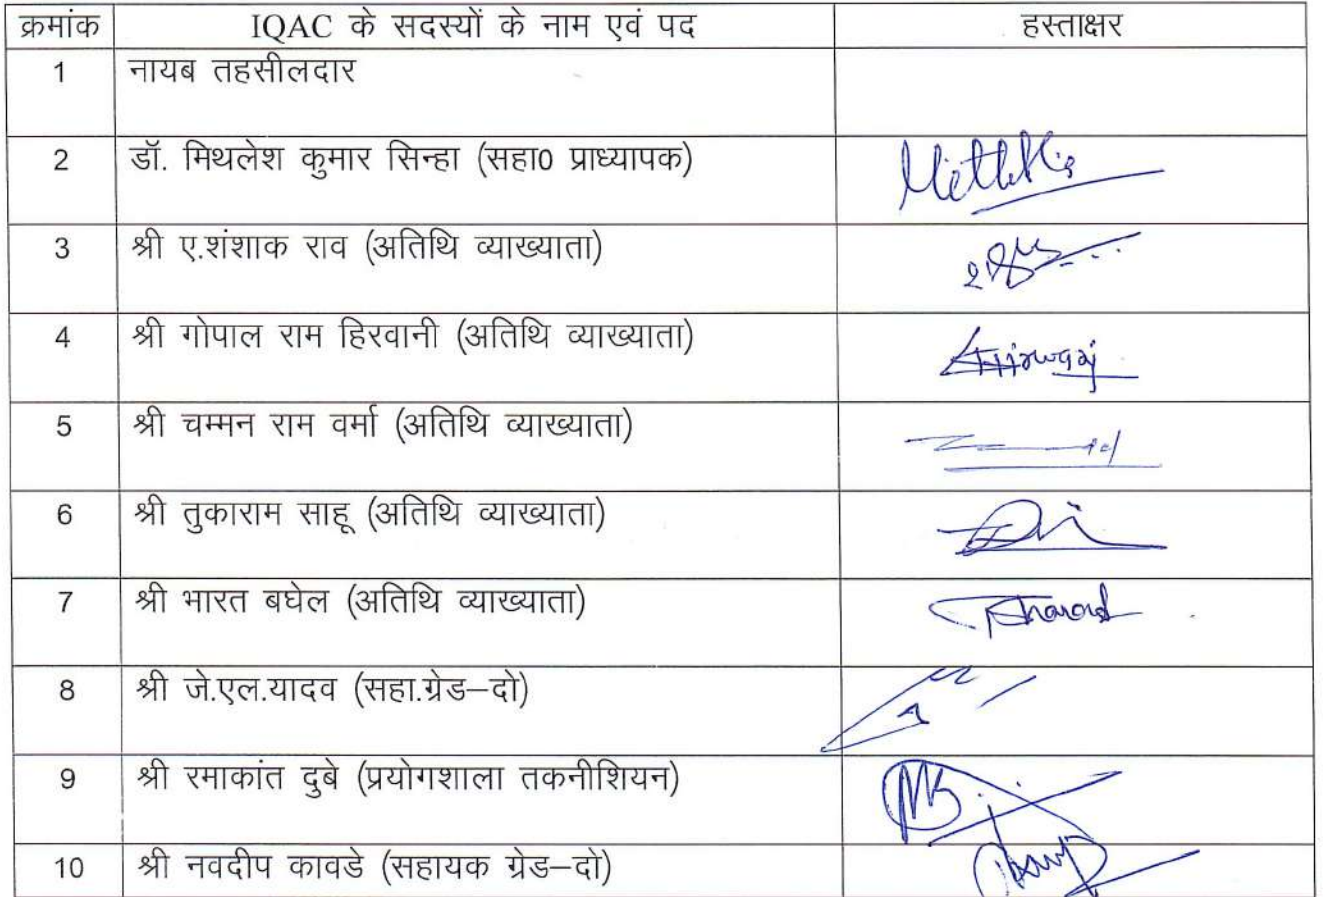 क्रमांक IQAC के सदस्यों के नाम एवं पद हस्ताक्षर
1 नायब तहसीलदार
2 डॉ. मिथलेश कुमार सिन्हा (सहा0 प्राध्यापक)
3 श्री ए.शंशाक राव (अतिथि व्याख्याता)
4 श्री गोपाल राम हिरवानी (अतिथि व्याख्याता)
5 श्री चम्मन राम वर्मा (अतिथि व्याख्याता)
6 श्री तुकाराम साहू (अतिथि व्याख्याता)
7 श्री भारत बघेल (अतिथि व्याख्याता)
8 श्री जे.एल.यादव (सहा.ग्रेड–दो)
9 श्री रमाकांत दुबे (प्रयोगशाला तकनीशियन)
10 श्री नवदीप कावडे (सहायक ग्रेड–दो)